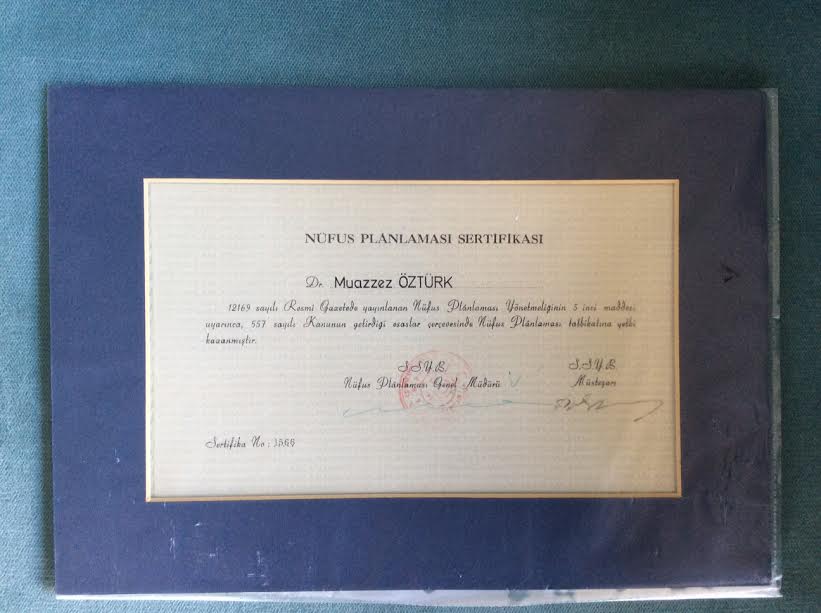 NÜFUS PLÂNLAMASI SERTİFİKASI
Dr. Muazzez ÖZTÜRK
12169 sayılı Resmî Gazetede yayınlanan Nüfus Plânlaması Yönetmeliğinin 5 inci maddesi
uyarınca, 557 sayılı Kanunun getirdiği esaslar çerçevesinde Nüfus Plânlaması tatbikatına yetki
kazanmıştır.
S.S.Y.B. S.S.Y.B.
Nüfus Plânlaması Genel Müdürü Müsteşarı
Sertifika No :